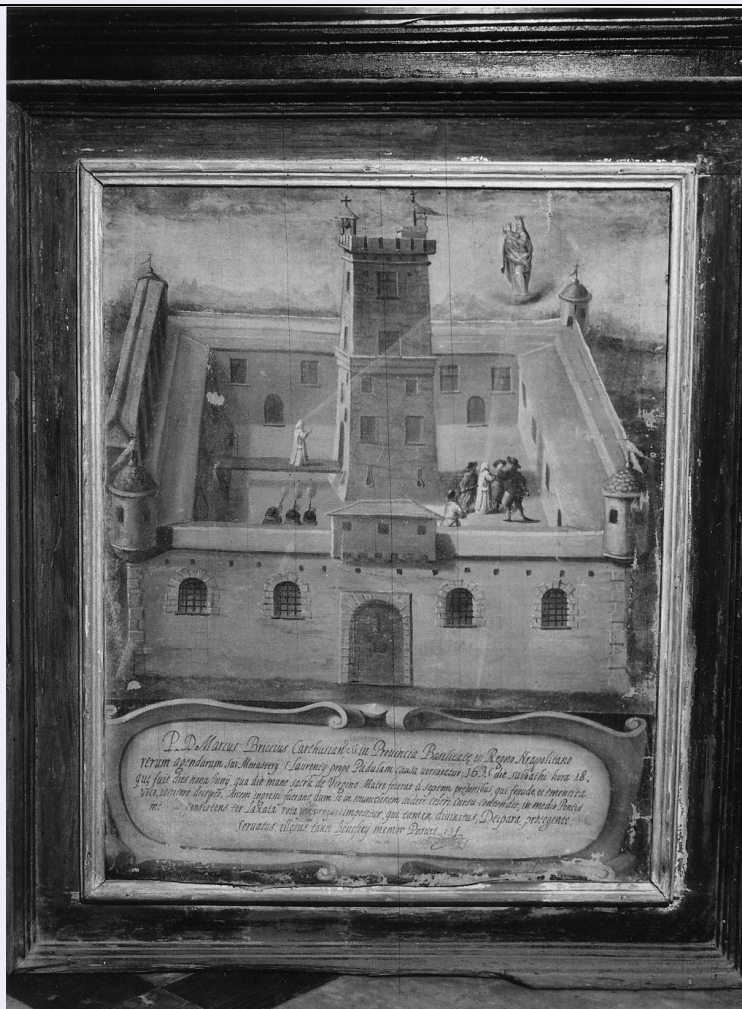 P. D. Marcus Briccius Carthusian in Provincia Basilicate in Regno Neapolitano
rerum agendarum sui Monastery S Laurenty prope Padulam causa versaretur 163 die sabbathi hora 18.
que fuit dies nona Juny, qua die mane sacrũ de Virgine Matre fecerat á septem qui fraude et ementita
Arcem ingressi fuerant, dum se in munitionem cederet cursu contendit, in medio Pontis
consistens ter laxata rota impetitur, qui tamen divinitus, Deipara protegente
servatus illesus tanti beneficy memor Posuit